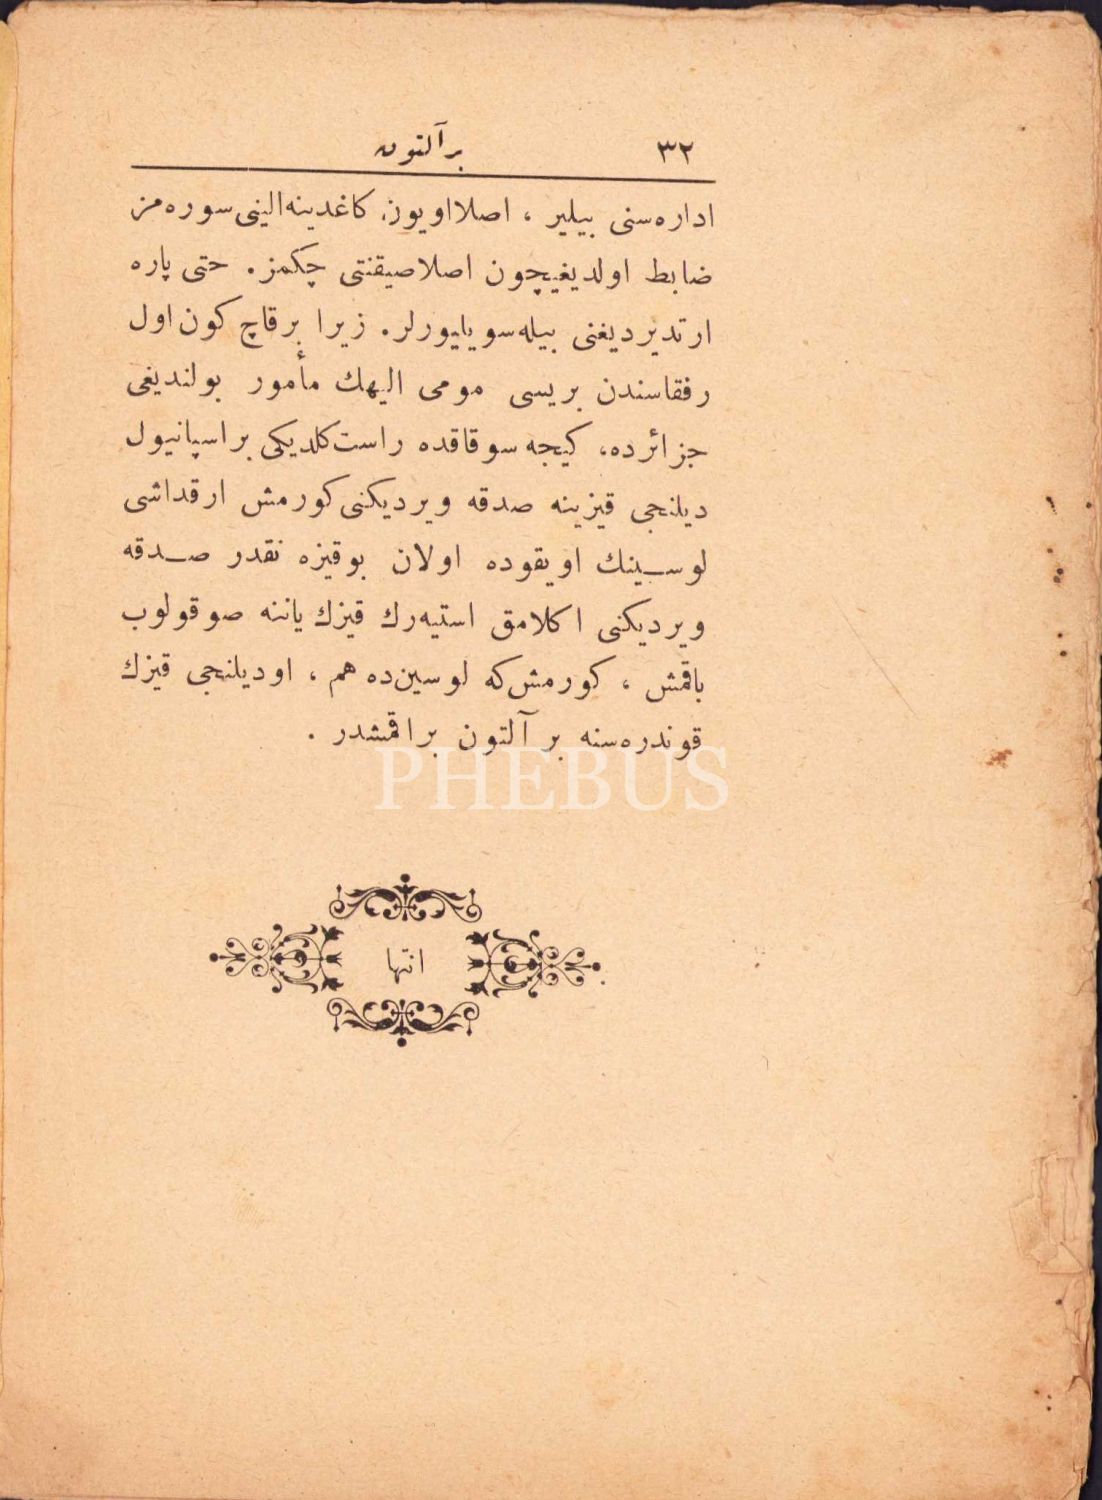 ٣٢
بر آلتون
اداره‌سنی بیلیر ، اصلا اویون کاغدینه الینی سوره‌مز
ضابط اولدیغیچون اصلا صیقنتی چکمز. حتی پاره
ارتدیردیغنی بیله سویلیورلر. زیرا برقاچ کون اول
رفقاسندن بریسی مومی الیهك مأمور بولندیغی
جزائرده، کیجه سوقاقده راست کلدیکی بر اسپانیول
دیلنجی قیزینه صدقه ویردیکنی کورمش ارقداشی
لوسینك اویقوده اولان بوقیزه نقدر صدقه
ویردیکنی اکلامق استیه‌رك قیزك یاننه صوقولوب
باقمش ، کورمش که لوسین ده هم ، او دیلنجی قیزك
قوندره‌سنه بر آلتون براقمشدر .
PHEBUS
انتها